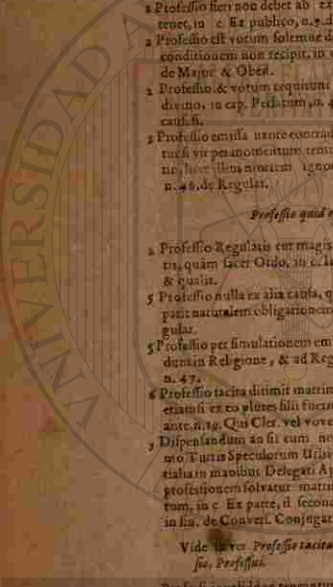 2 Professio fieri non debet ab ex
tenet, in c. Ex publico, n. 9. d
2 Professio est votum solemne d
conditionem non recipit, in c
de Major. & Obed.
2 Professio & votum requirunt
divino, in cap. Perlatum, n.
causs.
3 Professio emissa uxore contrad
tur si vir per momentum
tio, licet illius mortem igno
n. 46. de Regular.
Professio quid
2 Professio Regularis cur magis
tis, quàm sacer Ordo, in c.
& qualit.
5 Professio nulla ex alia causa, q
parit naturalem obligationem
gular.
5 Professio per simulationem em
dum in Religione, & ad Reg
n. 47.
6 Professio tacita dirimit matrim
etiamsi ex eo plures filii fuerin
ante. n. 19. Qui Cler. vel vove
3 Dispensandum an sit cum no
mo Turris Speculorum Urbis
tialia in manibus Delegati Ap
professionem solvatur matri
tum, in c. Ex parte, il second
in fin. de Convers. Conjugat
Vide in ver. Professio tacita
sio, Professus.
UNIVERSIDAD